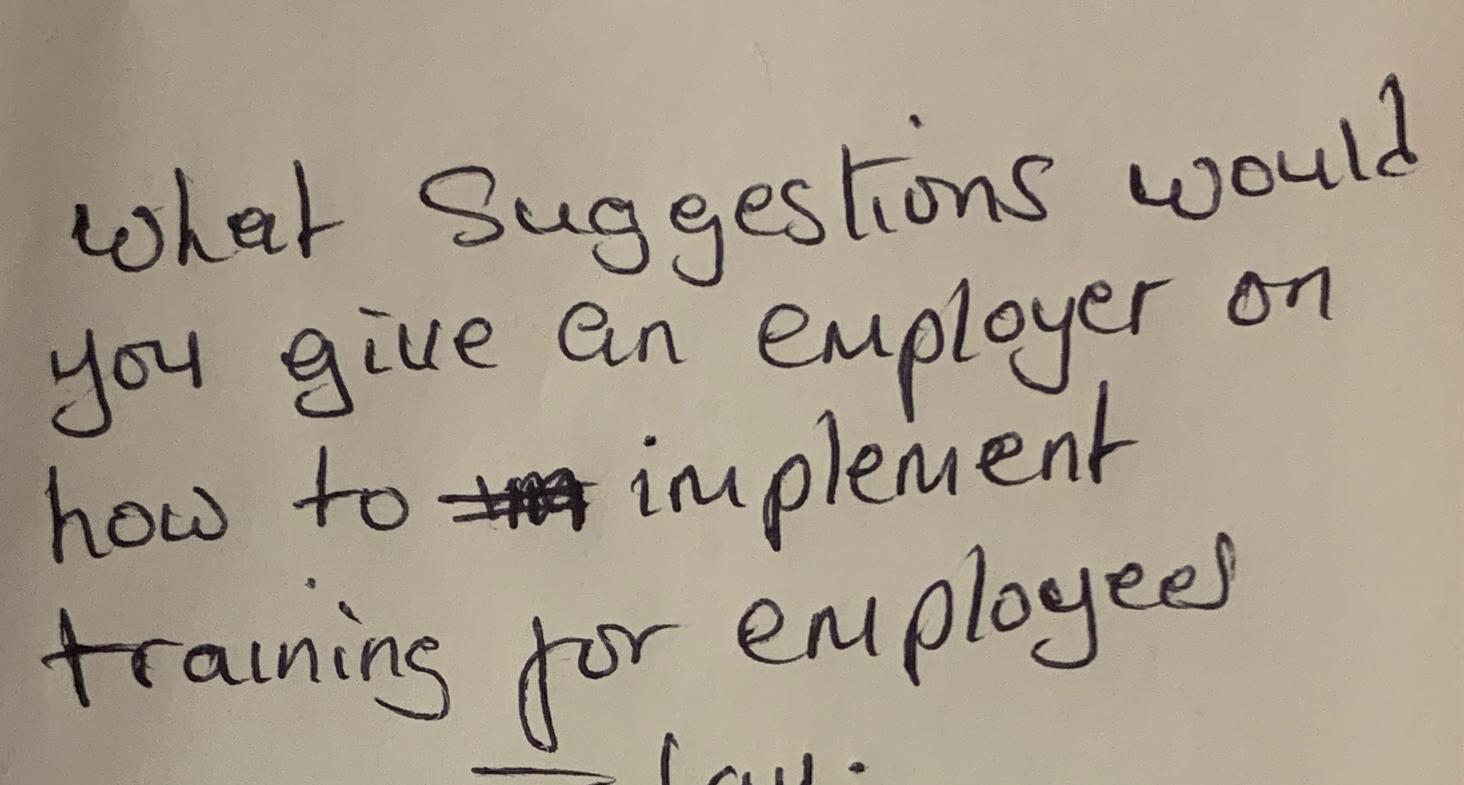 what Suggestions would
you give an employer on
how to implement
training for employees